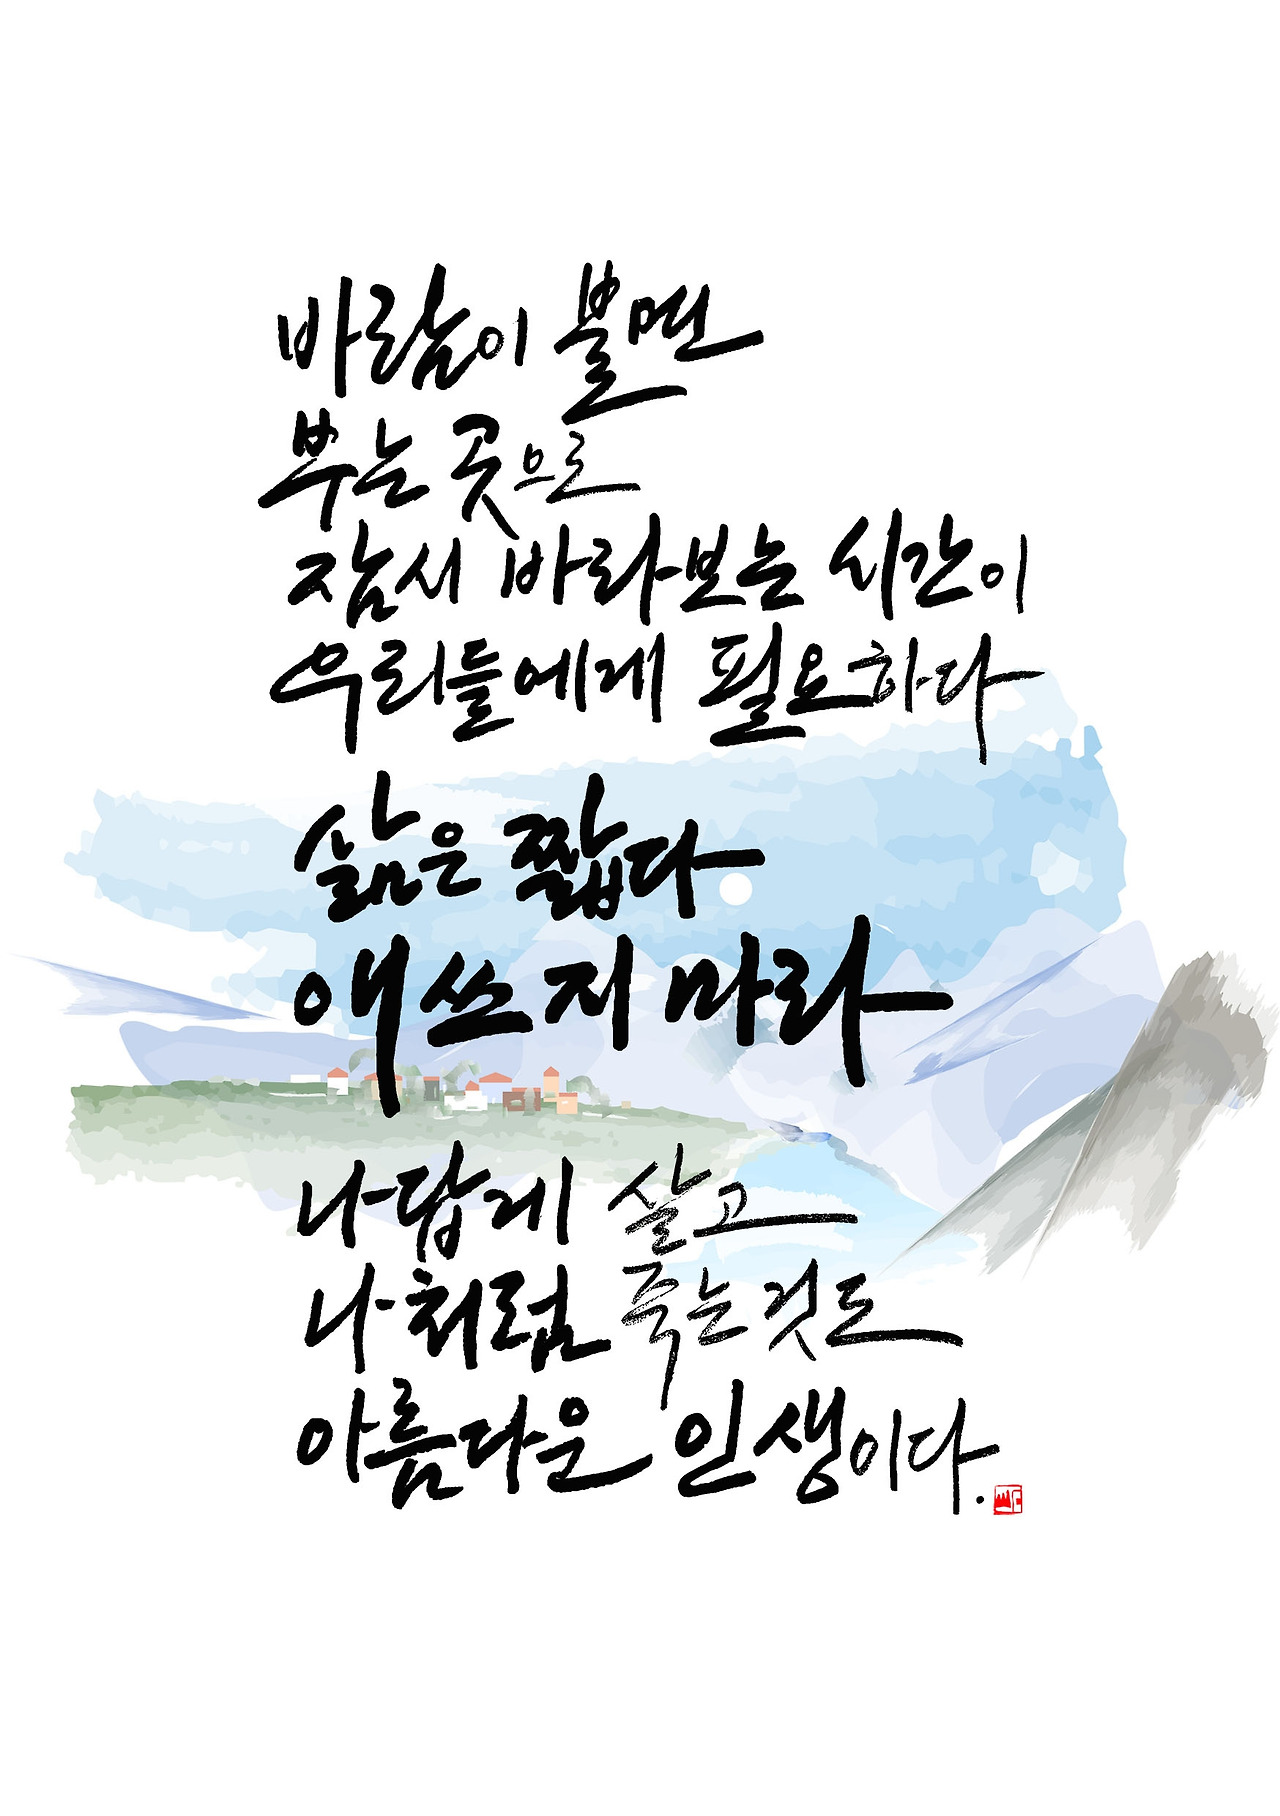 바람이 불면
부는 곳으로
잠시 바라보는 시간이
우리들에게 필요하다
삶은 짧다
애쓰지 마라
나답게 살고
나처럼 죽는것도
아름다운 인생이다.